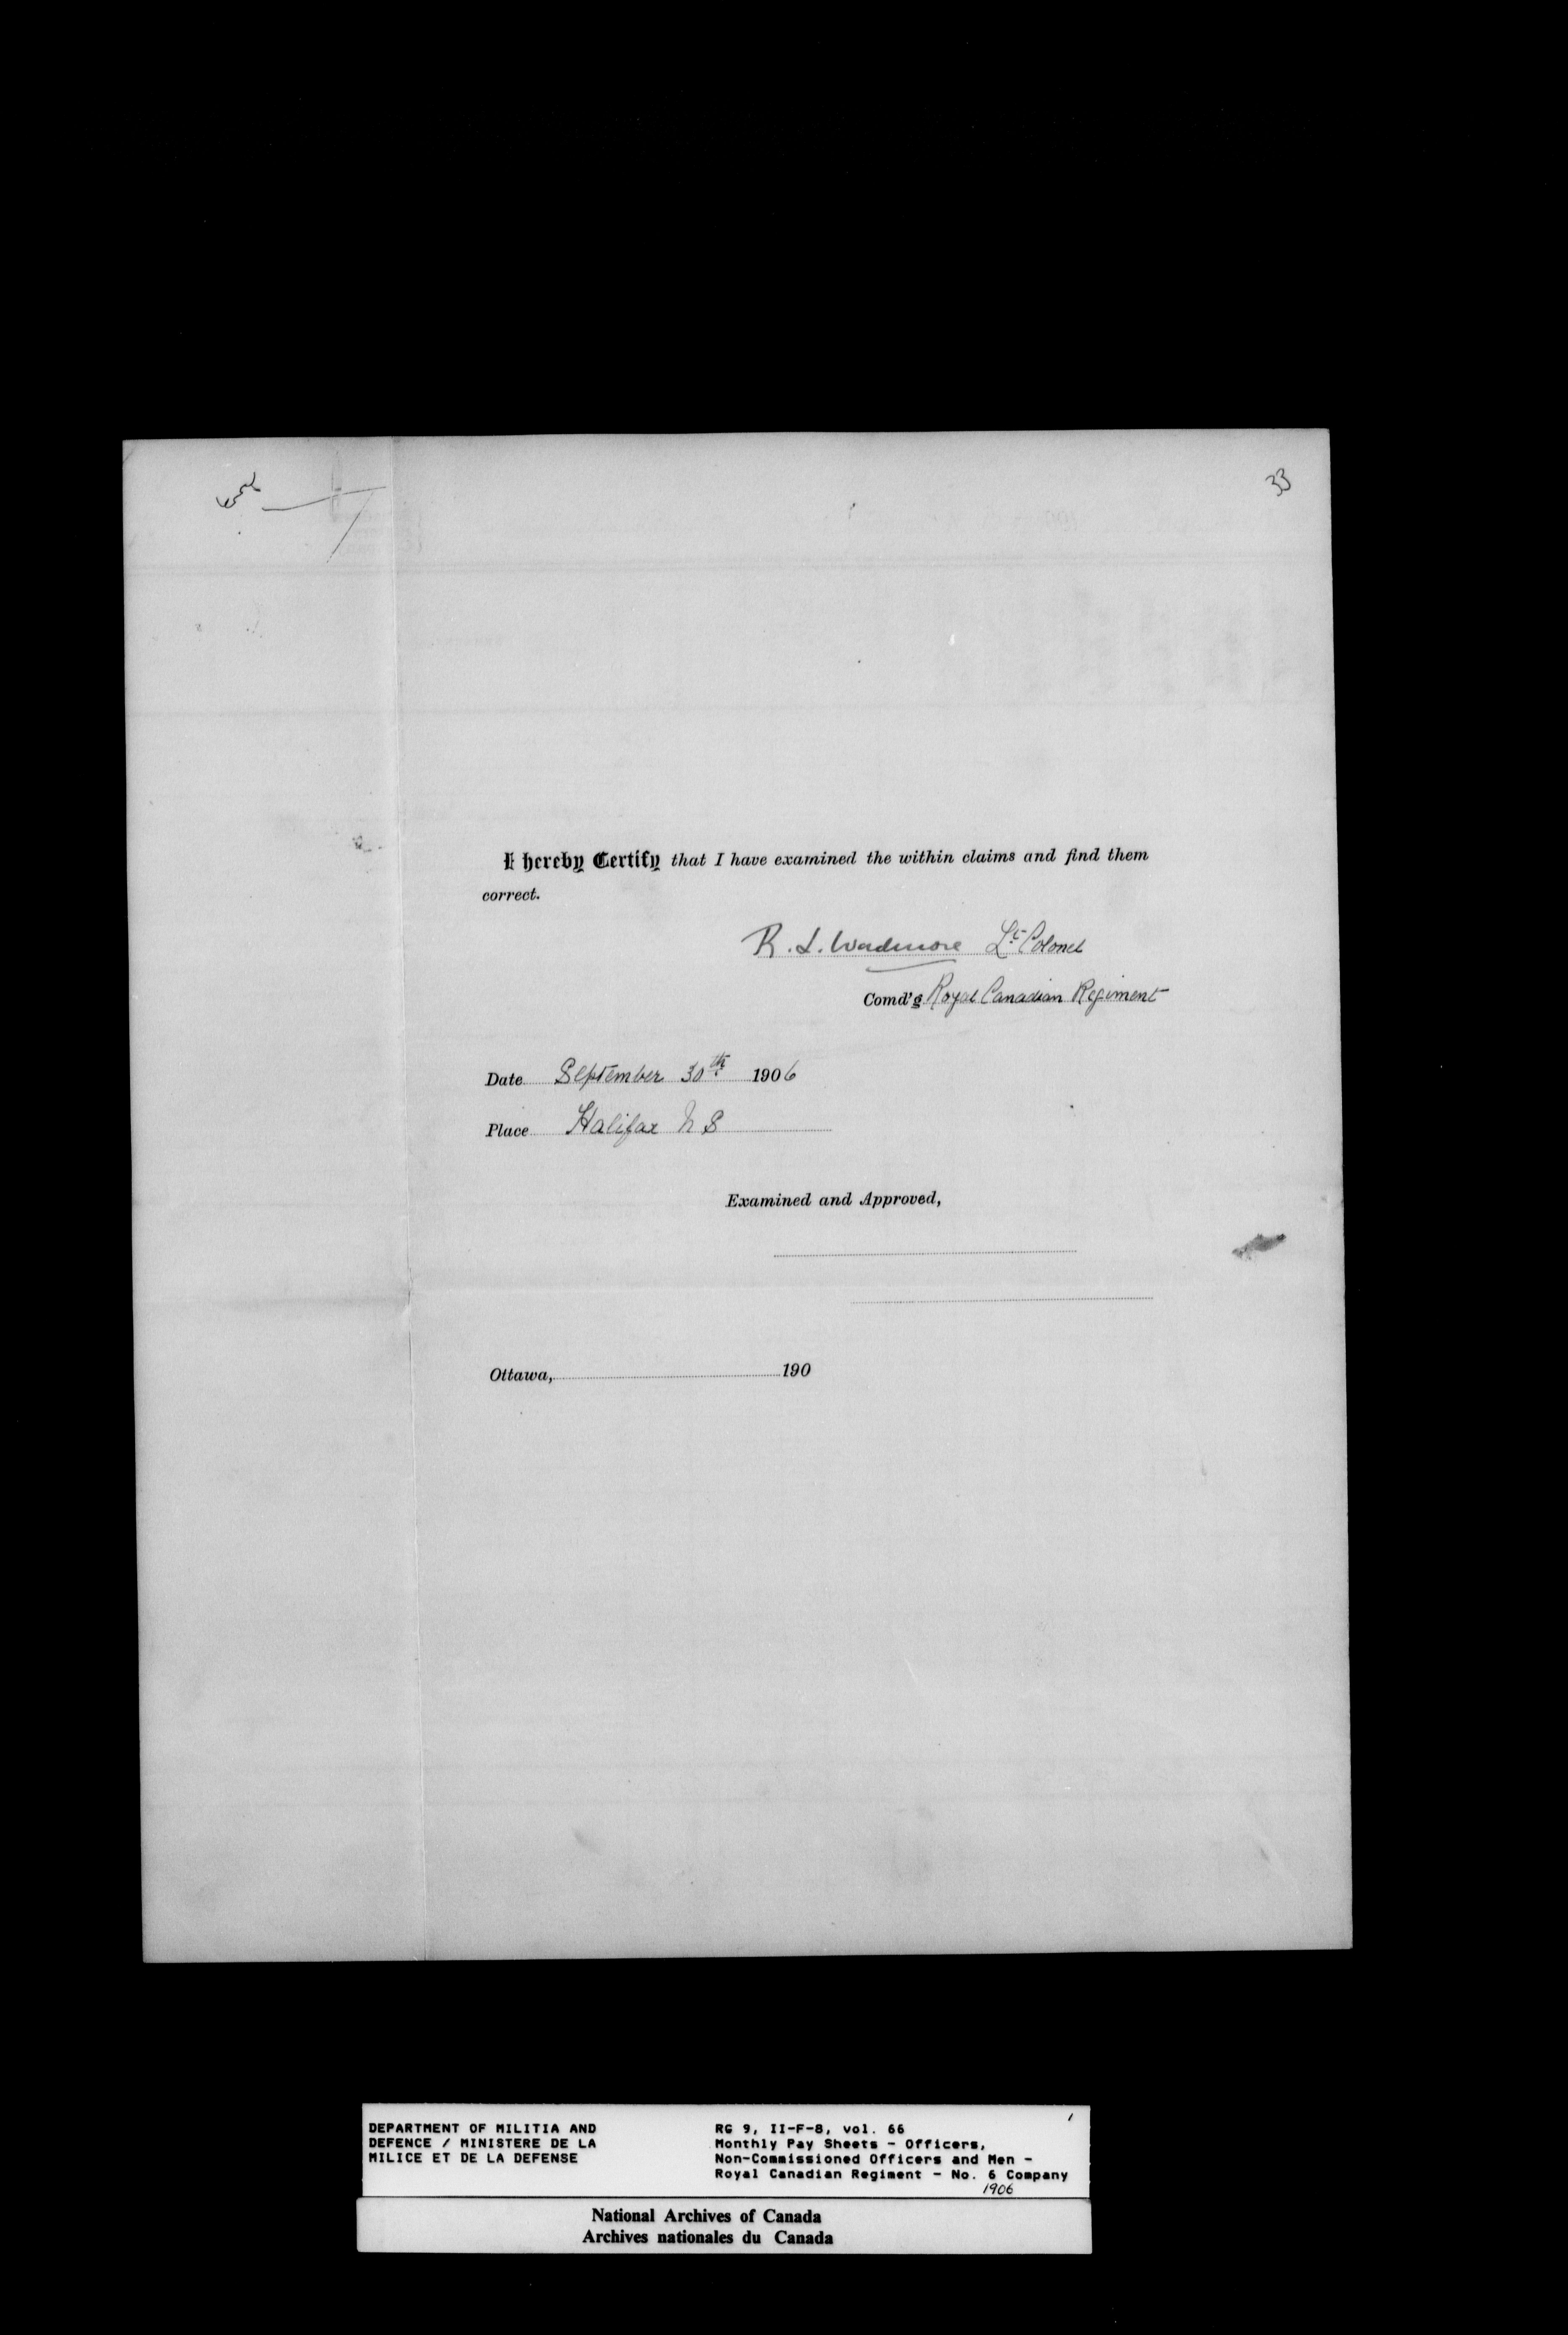 33
I hereby Certify that I have examined the within claims and find them
correct.
R. L. Wadmore Lt. Colonel
Comd'g Royal Canadian Regiment
Date September 30th 1906
Place Halifax N S
Examined and Approved,
Ottawa, 190
DEPARTMENT OF MILITIA AND
DEFENCE / MINISTERE DE LA
MILICE ET DE LA DEFENSE
RG 9, II-F-8, vol. 66
Monthly Pay Sheets - Officers,
Non-Commissioned Officers and Men -
Royal Canadian Regiment - No. 6 Company
1906
National Archives of Canada
Archives nationales du Canada